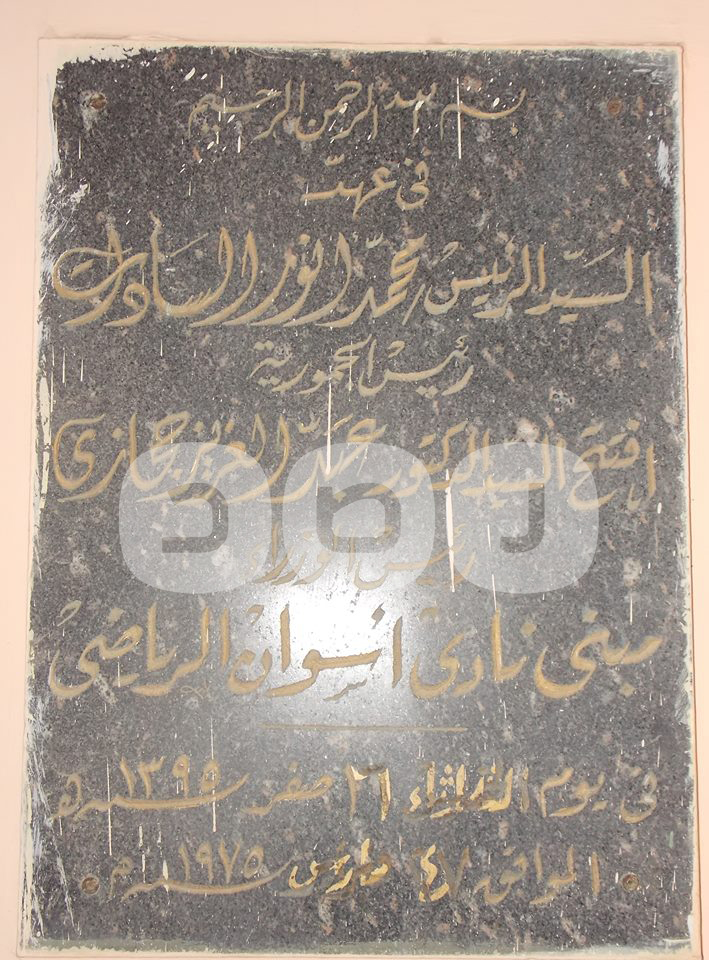 بسم الله الرحمن الرحيم
فى عهد
السيد الرئيس محمد انور السادات
رئيس الجمهورية
افتتح السيد الدكتور عبد العزيز حجازى
رئيس الوزراء
مبنى نادى اسوان الرياضى
فى يوم الثلاثاء صفر سنة ١٣٩٥ هـ
الموافق مارس سنة ١٩٧٥ م